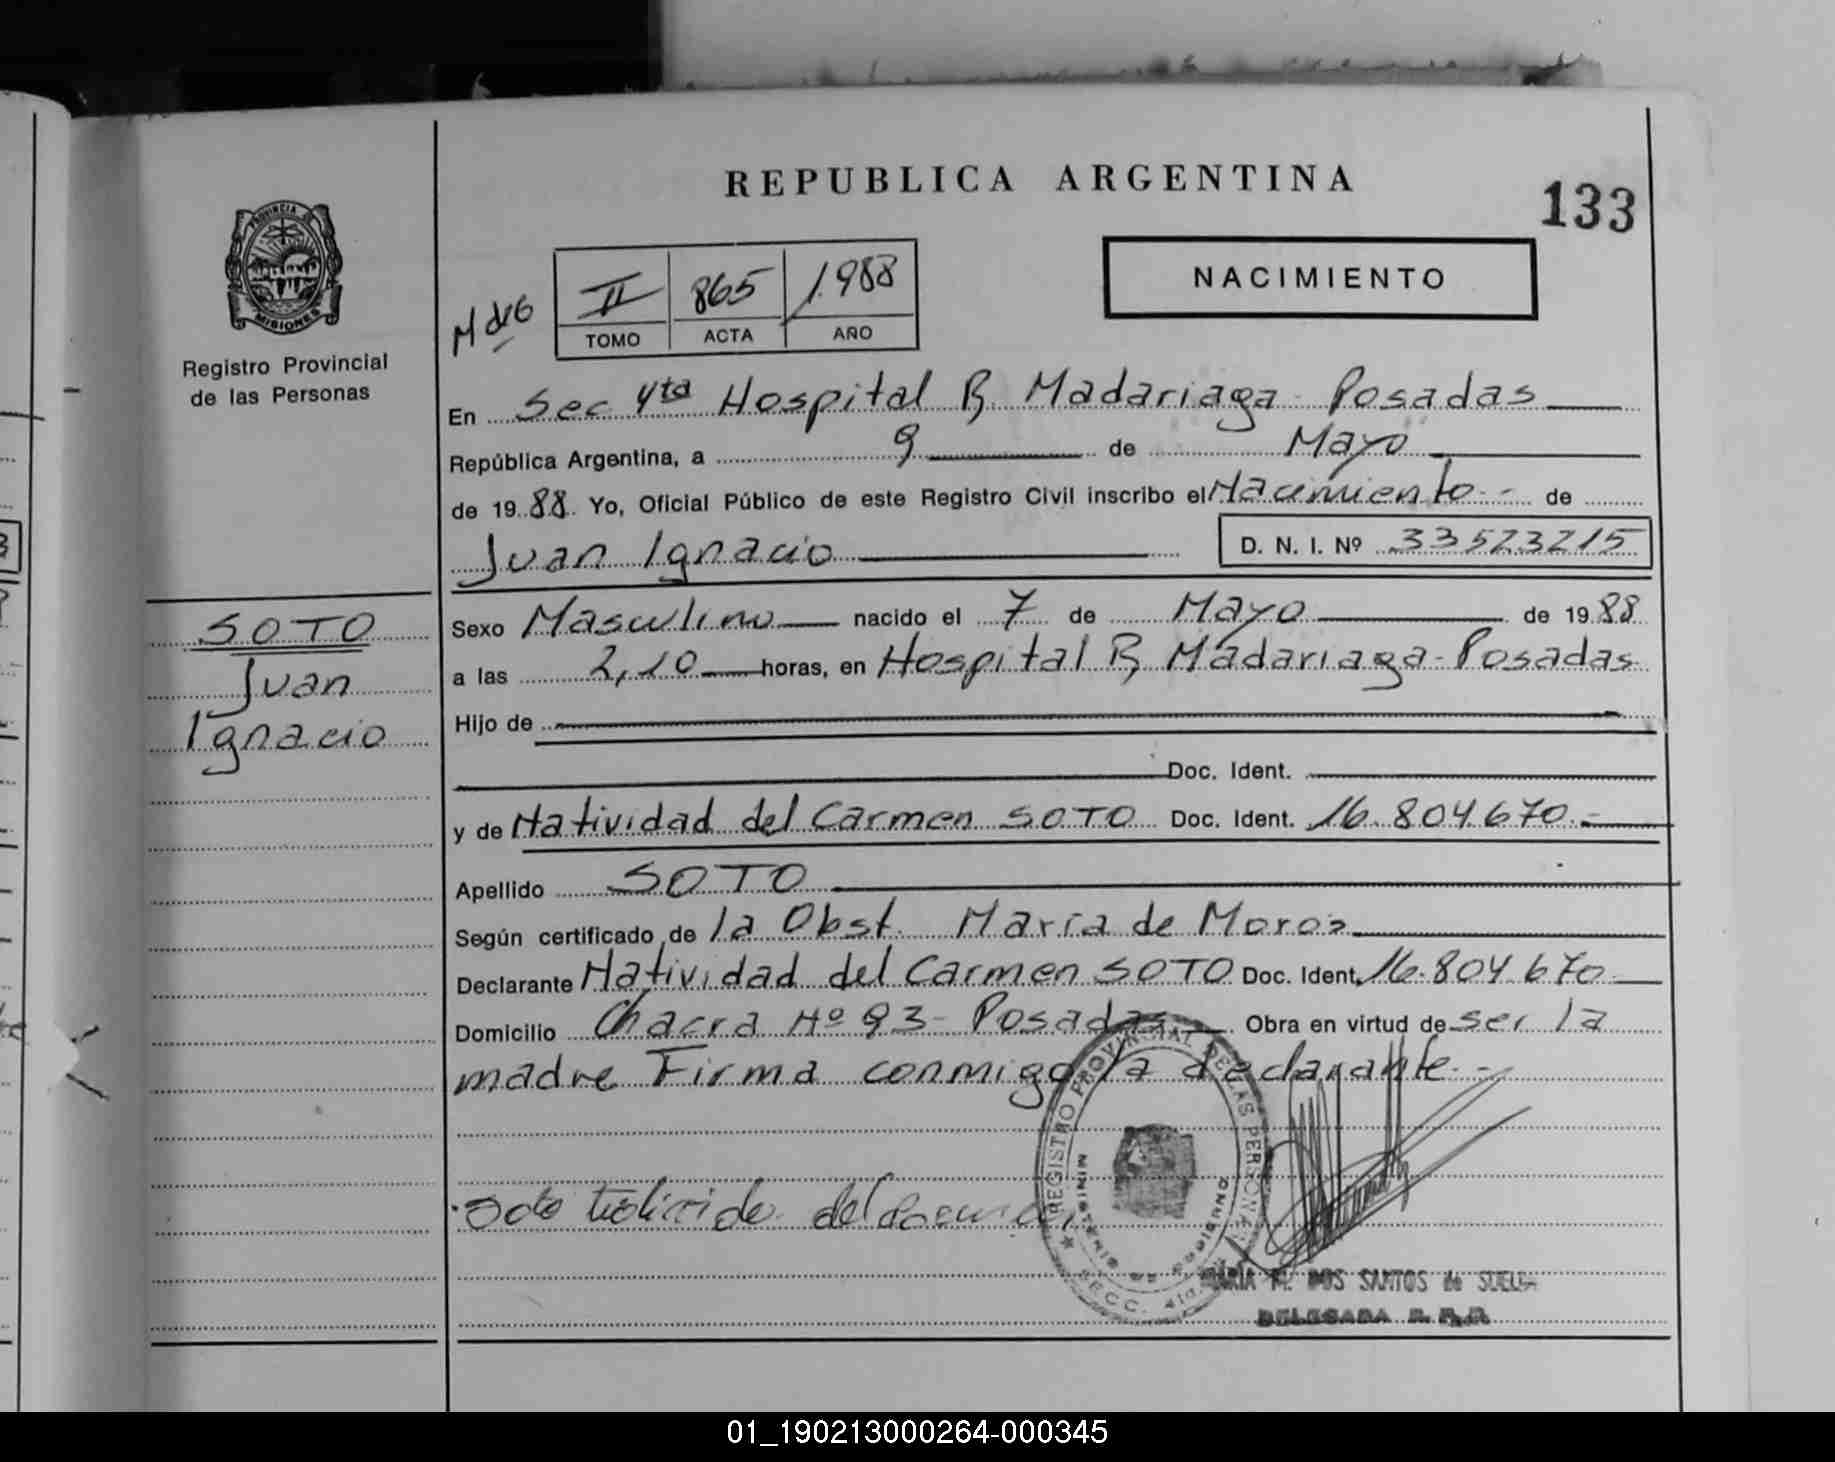 REPUBLICA ARGENTINA
133
PROVINCIA DE
MISIONES
Registro Provincial
de las Personas
II 865 1.988
TOMO ACTA AÑO
NACIMIENTO
En Sec 4ta Hospital R. Madariaga - Posadas
República Argentina, a 9 de Mayo
de 19 88 Yo, Oficial Público de este Registro Civil inscribo el Nacimiento - de
Juan Ignacio
D. N. I. Nº 33523215
SOTO
Juan
Ignacio
Sexo Masculino nacido el 7 de Mayo de 19 88
a las 2,10 horas, en Hospital R. Madariaga - Posadas
Hijo de
Doc. Ident.
y de Natividad del Carmen SOTO Doc. Ident. 16.804.670.-
Apellido SOTO
Según certificado de la Obst. María de Moros
Declarante Natividad del Carmen SOTO Doc. Ident. 16.804.670
Domicilio Chacra Nº 93 - Posadas Obra en virtud de ser la
madre Firma conmigo la declarante.-
REGISTRO PROVINCIAL DE LAS PERSONAS
MINISTERIO DE GOBIERNO
SECC. 4ta.
Soto del
MARIA DOS SANTOS de
DELEGADA
01_190213000264-000345